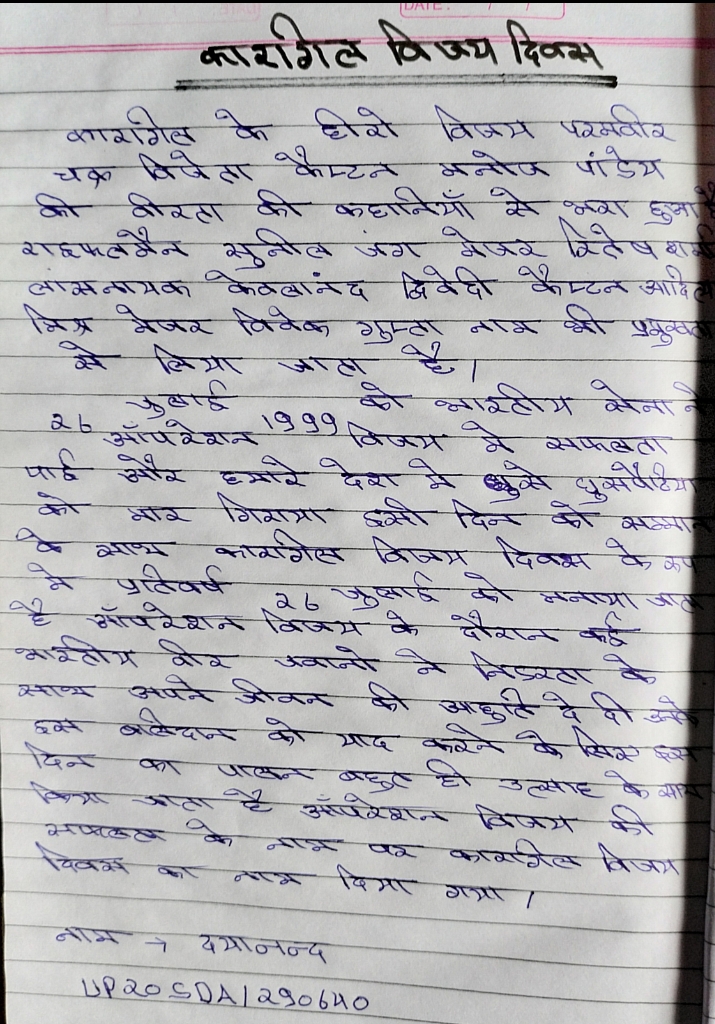 DATE: / /
कारगिल विजय दिवस
कारगिल के हीरो विजय परमवीर
चक्र विजेता कैप्टन मनोज पांडेय
की वीरता की कहानियाँ से भरा हुआ है
राइफलमैन सुनील जंग मेजर रितेष शर्मा
लांसनायक केवलानंद द्विवेदी कैप्टन आदित्य
मिश्र मेजर विवेक गुप्ता नाम भी प्रमुखता
से लिया जाता है।
26 जुलाई 1999 को भारतीय सेना ने
ऑपरेशन विजय मे सफलता
पाई और हमारे देश मे घुसे घुसपैठिया
को मार गिराया इसी दिन को सम्मान
के साथ कारगिल विजय दिवस के रूप
मे प्रतिवर्ष 26 जुलाई को मनाया जाता
है ऑपरेशन विजय के दौरान कई
भारतीय वीर जवानो ने निडरता के
साथ अपने जीवन की आहुति दे दी उनके
इस बलिदान को याद करने के लिए इस
दिन का पालन बहुत ही उत्साह के साथ
किया जाता है ऑपरेशन विजय की
सफलता के नाम पर कारगिल विजय
दिवस का नाम दिया गया।
नाम → दयानन्द
UP20SDA1290640